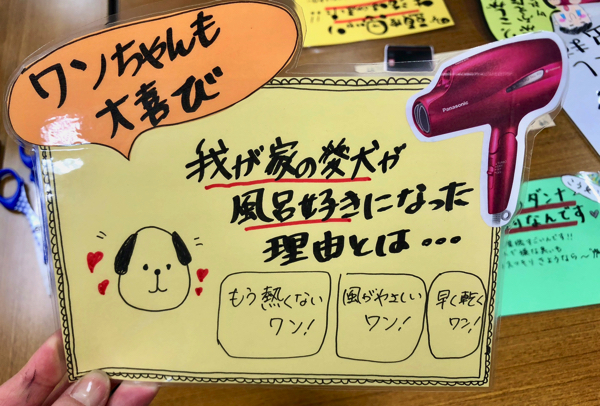 ワンちゃんも
大喜び
Panasonic
我が家の愛犬が
風呂好きになった
理由とは・・・
もう熱くない
ワン!
風がやさしい
ワン!
早く乾く
ワン!